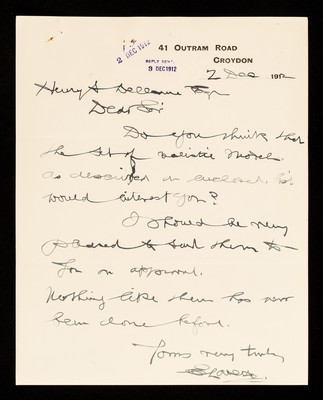 41 OUTRAM ROAD
CROYDON
2 DEC 1912
REPLY SENT.
3 DEC 1912
2 Dec 1912
Henry S Wellcome Esqr
Dear Sir
Do you think that
the set of realistic models
as described in enclosed list
would interest you?
I should be very
pleased to send them to
you on approval.
Nothing like them has ever
been done before.
Yours very truly